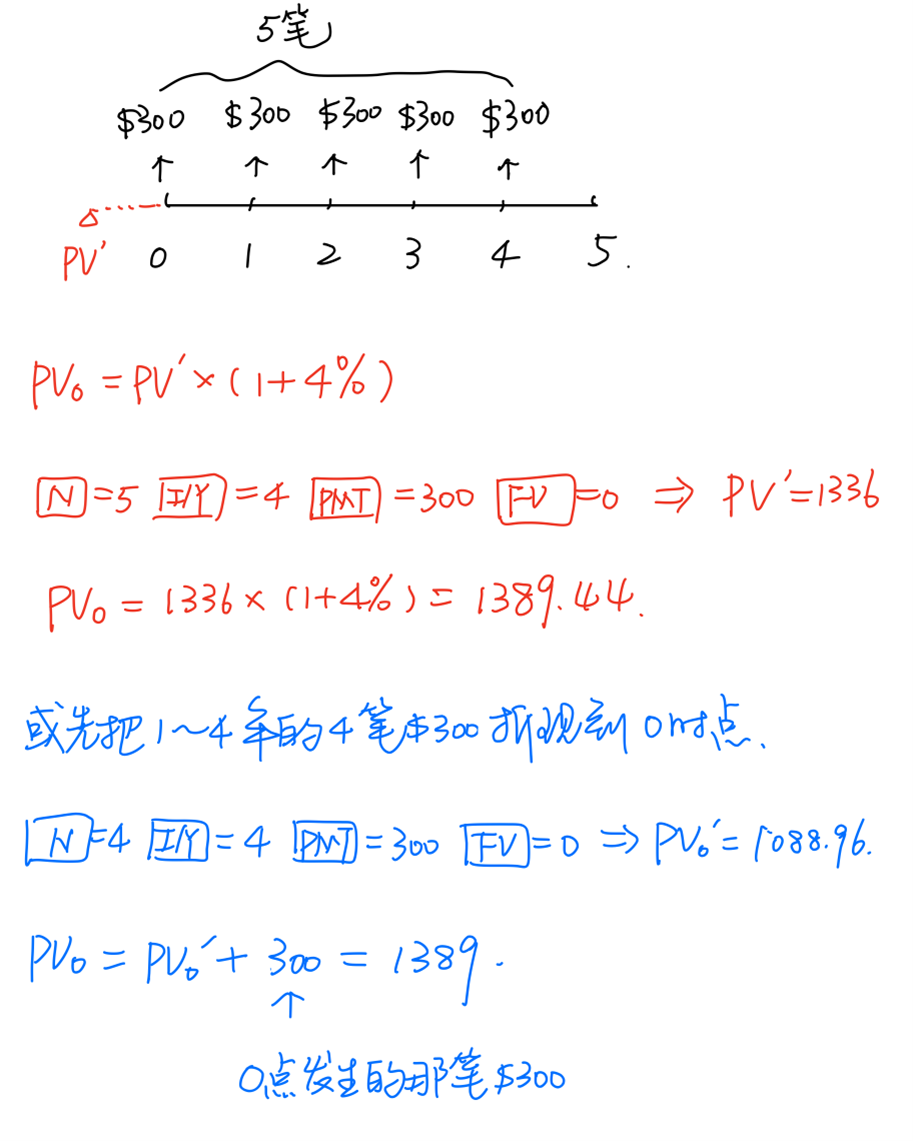 5笔
$300 $300 $300 $300 $300
PV'
0 1 2 3 4 5.
PV₀ = PV' × (1+4%)
N=5 I/Y=4 PMT=300 FV=0 ⇒ PV'=1336
PV₀ = 1336 × (1+4%) = 1389.44.
或先把1~4年的4笔$300折现到0时点.
N=4 I/Y=4 PMT=300 FV=0 ⇒ PV₀'=1088.96.
PV₀ = PV₀' + 300 = 1389.
0点发生的那笔$300